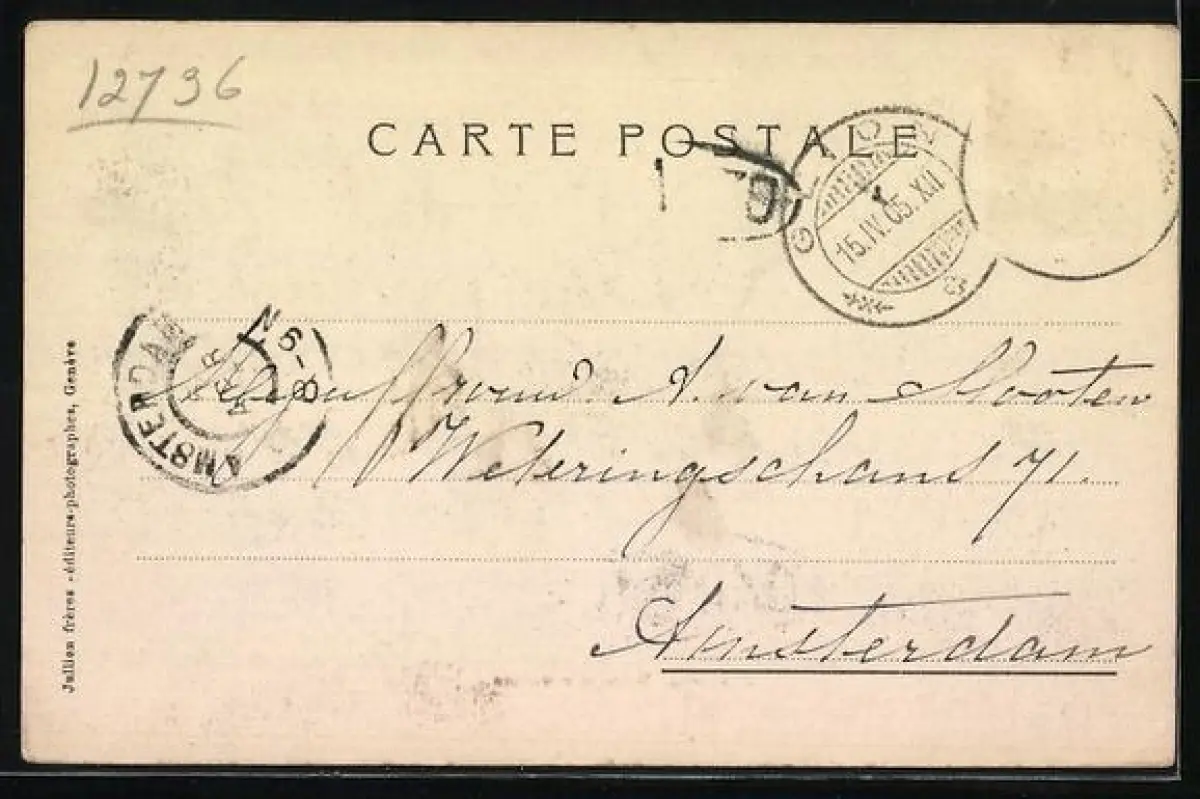 12736
CARTE POSTALE
GLION
15.IV.05.XII
AMSTERDAM
6-9 N
Mejuffrouw A. van Mooten
Weteringschans 71.
Amsterdam
Jullien frères - éditeurs-photographes, Genève